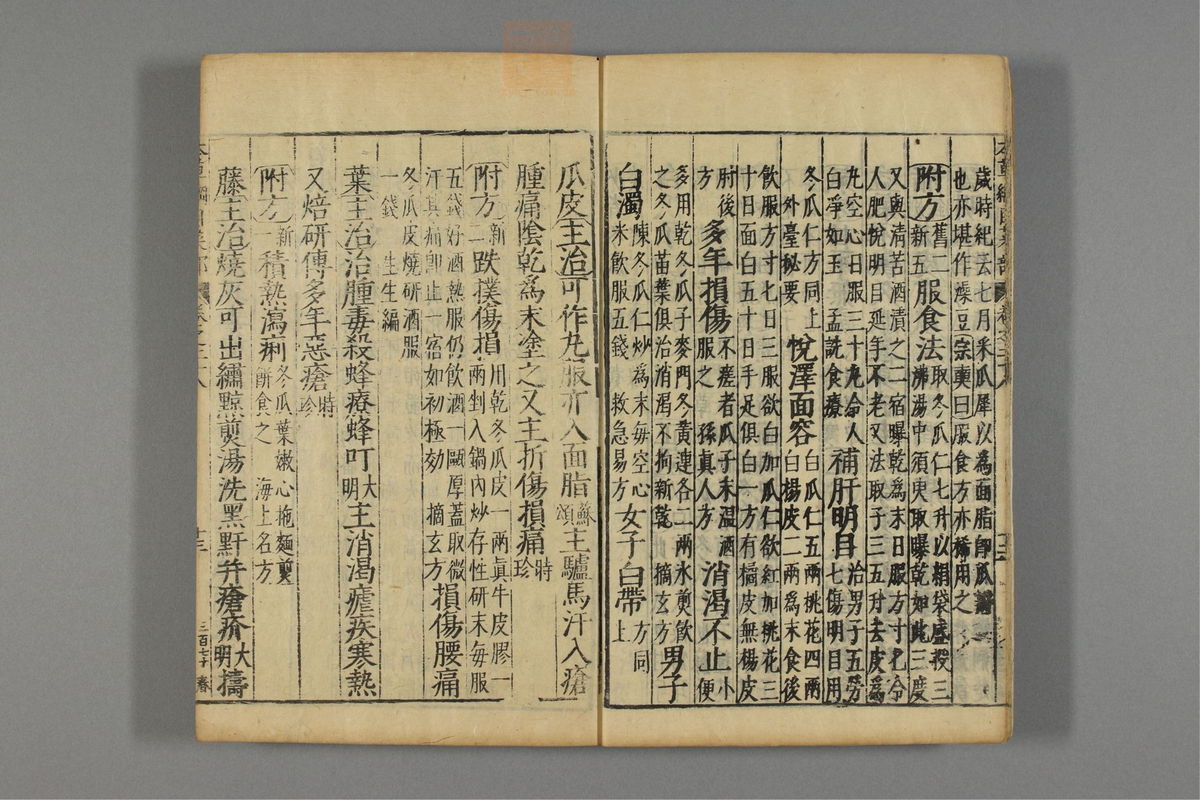 歲時紀云七月采瓜犀以為面脂即瓜瓣
也亦堪作澡豆宗奭曰服食方亦稀用之
附方舊二新五服食法取冬瓜仁七升以絹袋盛投三沸湯中須臾取曝乾如此三度
又與清苦酒漬之二宿曝乾為末日服方寸匕令
人肥悅明目延年不老又法取子三五升去皮為
丸空心日服三十丸令人白淨如玉孟詵食療補肝明目治男子五勞七傷明目用
冬瓜仁方同上外臺秘要悅澤面容白瓜仁五兩桃花四兩白楊皮二兩為末食後
飲服方寸匕日三服欲白加瓜仁欲紅加桃花三
十日面白五十日手足俱白一方有橘皮無楊皮
肘後方多年損傷不瘥者瓜子末温酒服之孫真人方消渴不止小便
多用乾冬瓜子麥門冬黃連各二兩水煎飲之冬瓜苗葉俱治消渴不拘新乾摘玄方男子
白濁陳冬瓜仁炒為末每空心米飲服五錢救急易方女子白帶方同上
瓜皮主治可作丸服亦入面脂蘇頌主驢馬汗入瘡
腫痛陰乾為末塗之又主折傷損痛時珍
附方新二跌撲傷損用乾冬瓜皮一兩真牛皮膠一兩剉入鍋內炒存性研末每服
五錢好酒熱服仍飲酒一甌厚蓋取微汗其痛即止一宿如初極効摘玄方損傷腰痛
冬瓜皮燒研酒服
一錢生生編
葉主治治腫毒殺蜂療蜂叮大明主消渴瘧疾寒熱
又焙研傅多年惡瘡時珍
附方新一積熱瀉痢冬瓜葉嫩心拖麵煎餅食之海上名方
藤主治燒灰可出繡黥煎湯洗黑䵟并瘡疥大明擣